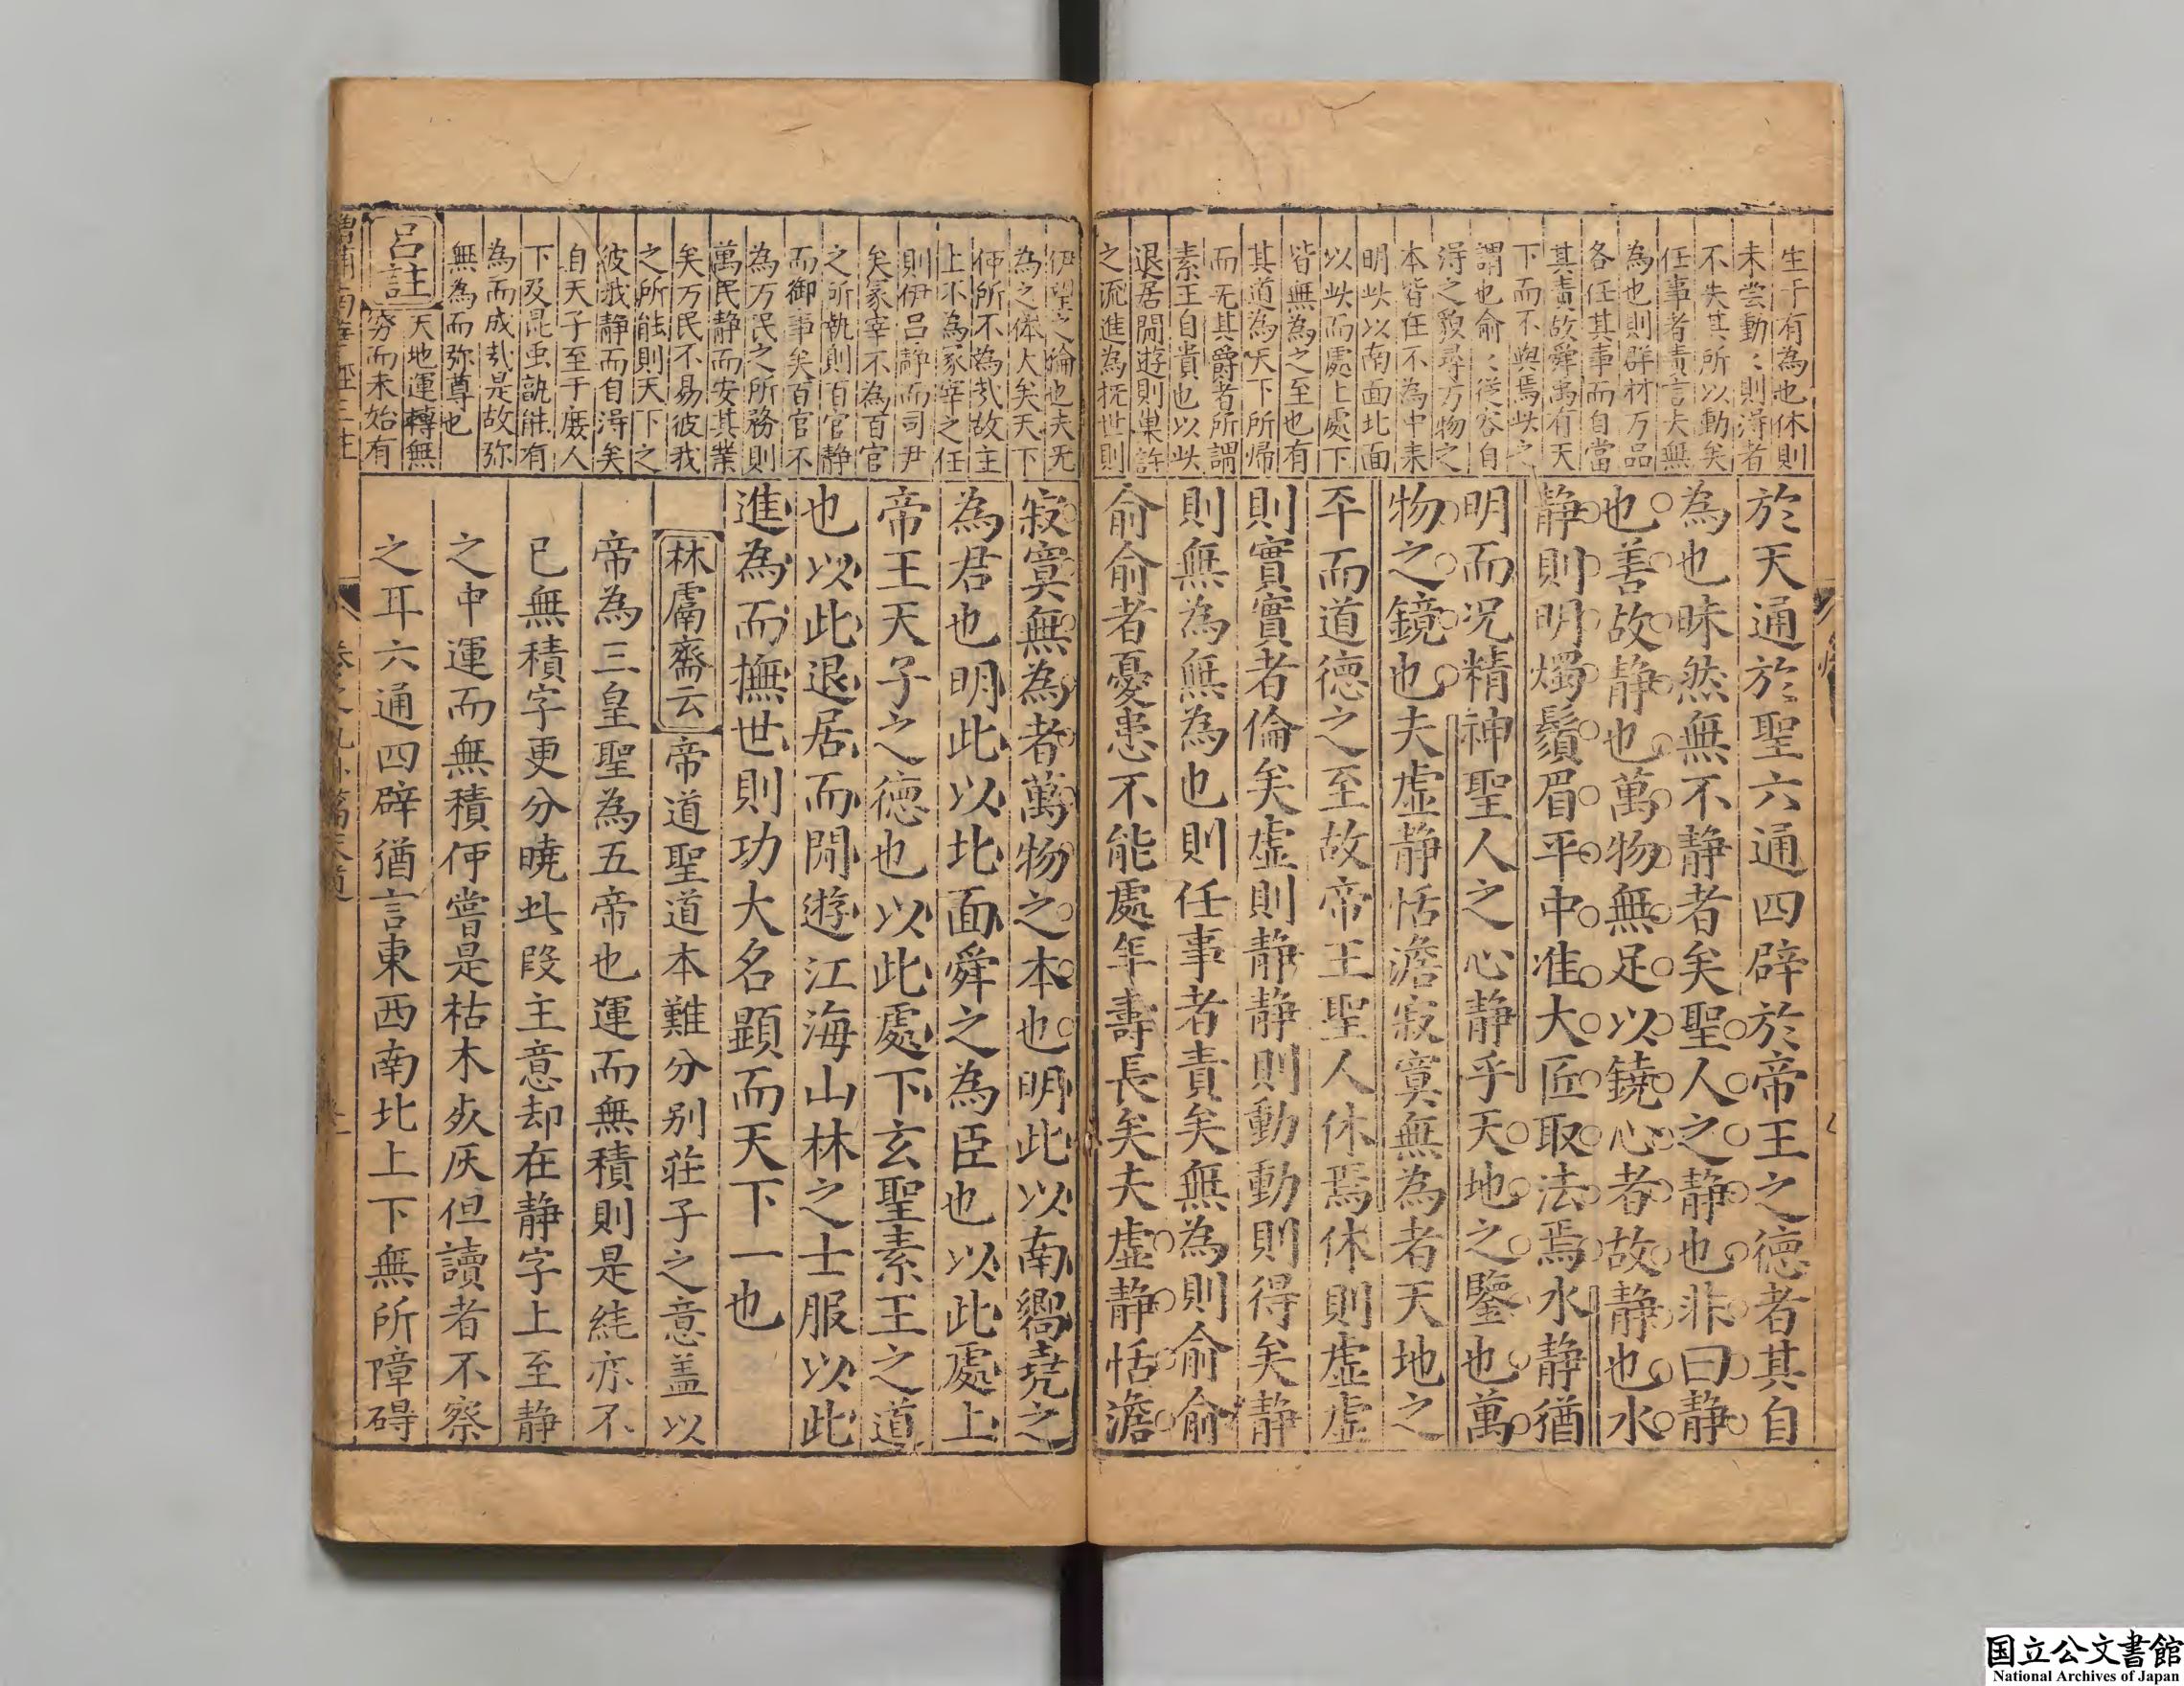 生于有為也休則
未尝動〻則淂者
不失其所以動矣
任事者責言夫無
為也則群材万品
各任其事而自當
其責故舜禹有天
下而不與焉此之
謂也俞〻従容自
淂之貌尋万物之
本皆在不為中来
明此以南面北面
以此而處上處下
皆無為之至也有
其道為天下所㷌
而无其爵者所謂
素王自貴也以此
退居閒遊則巢許
之流進為抚世則
於天通於聖六通四辟於帝王之德者其自
為也昧然無不静者矣聖人之静也非曰静
也善故静也萬物無足以鐃心者故静也水
静則明燭鬚眉平中准大匠取法焉水静猶
明而况精神聖人之心静乎天地之鑒也萬
物之鏡也夫虚静恬澹寂寞無為者天地之
平而道德之至故帝王聖人休焉休則虚虚
則實實者倫矣虚則静静則動動則得矣静
則無為無為也則任事者責矣無為則俞俞
俞俞者憂患不能處年壽長矣夫虚静恬澹
伊望之倫也夫无
為之体大矣天下
何所不為㢤故主
上不為冢宰之任
則伊吕静而司尹
矣冢宰不為百官
之所執則百官静
而御事矣百官不
為万民之所務則
萬民静而安其業
矣万民不易彼我
之所能則天下之
彼我静而自淂矣
自天子至于庻人
下及昆虫孰能有
為而成㢤是故弥
無為而弥尊也
吕註
天地運轉無
穷而未始有
寂寞無為者萬物之本也明此以南嚮堯之
為君也明此以北面舜之為臣也以此處上
帝王天子之德也以此處下玄聖素王之道
也以此退居而閒遊江海山林之士服以此
進為而撫世則功大名顕而天下一也
林鬳齋云 帝道聖道本難分别荘子之意盖以
帝為三皇聖為五帝也運而無積則是純亦不
已無積字更分曉此段主意却在静字上至静
之中運而無積何嘗是枯木死灰但讀者不察
之耳六通四辟猶言東西南北上下無所障碍
国立公文書館
National Archives of Japan